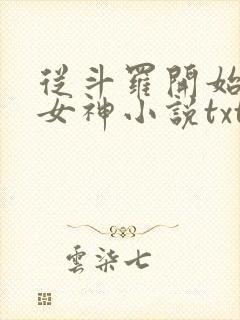 從斗羅開始
女神小說txt
雲柒七